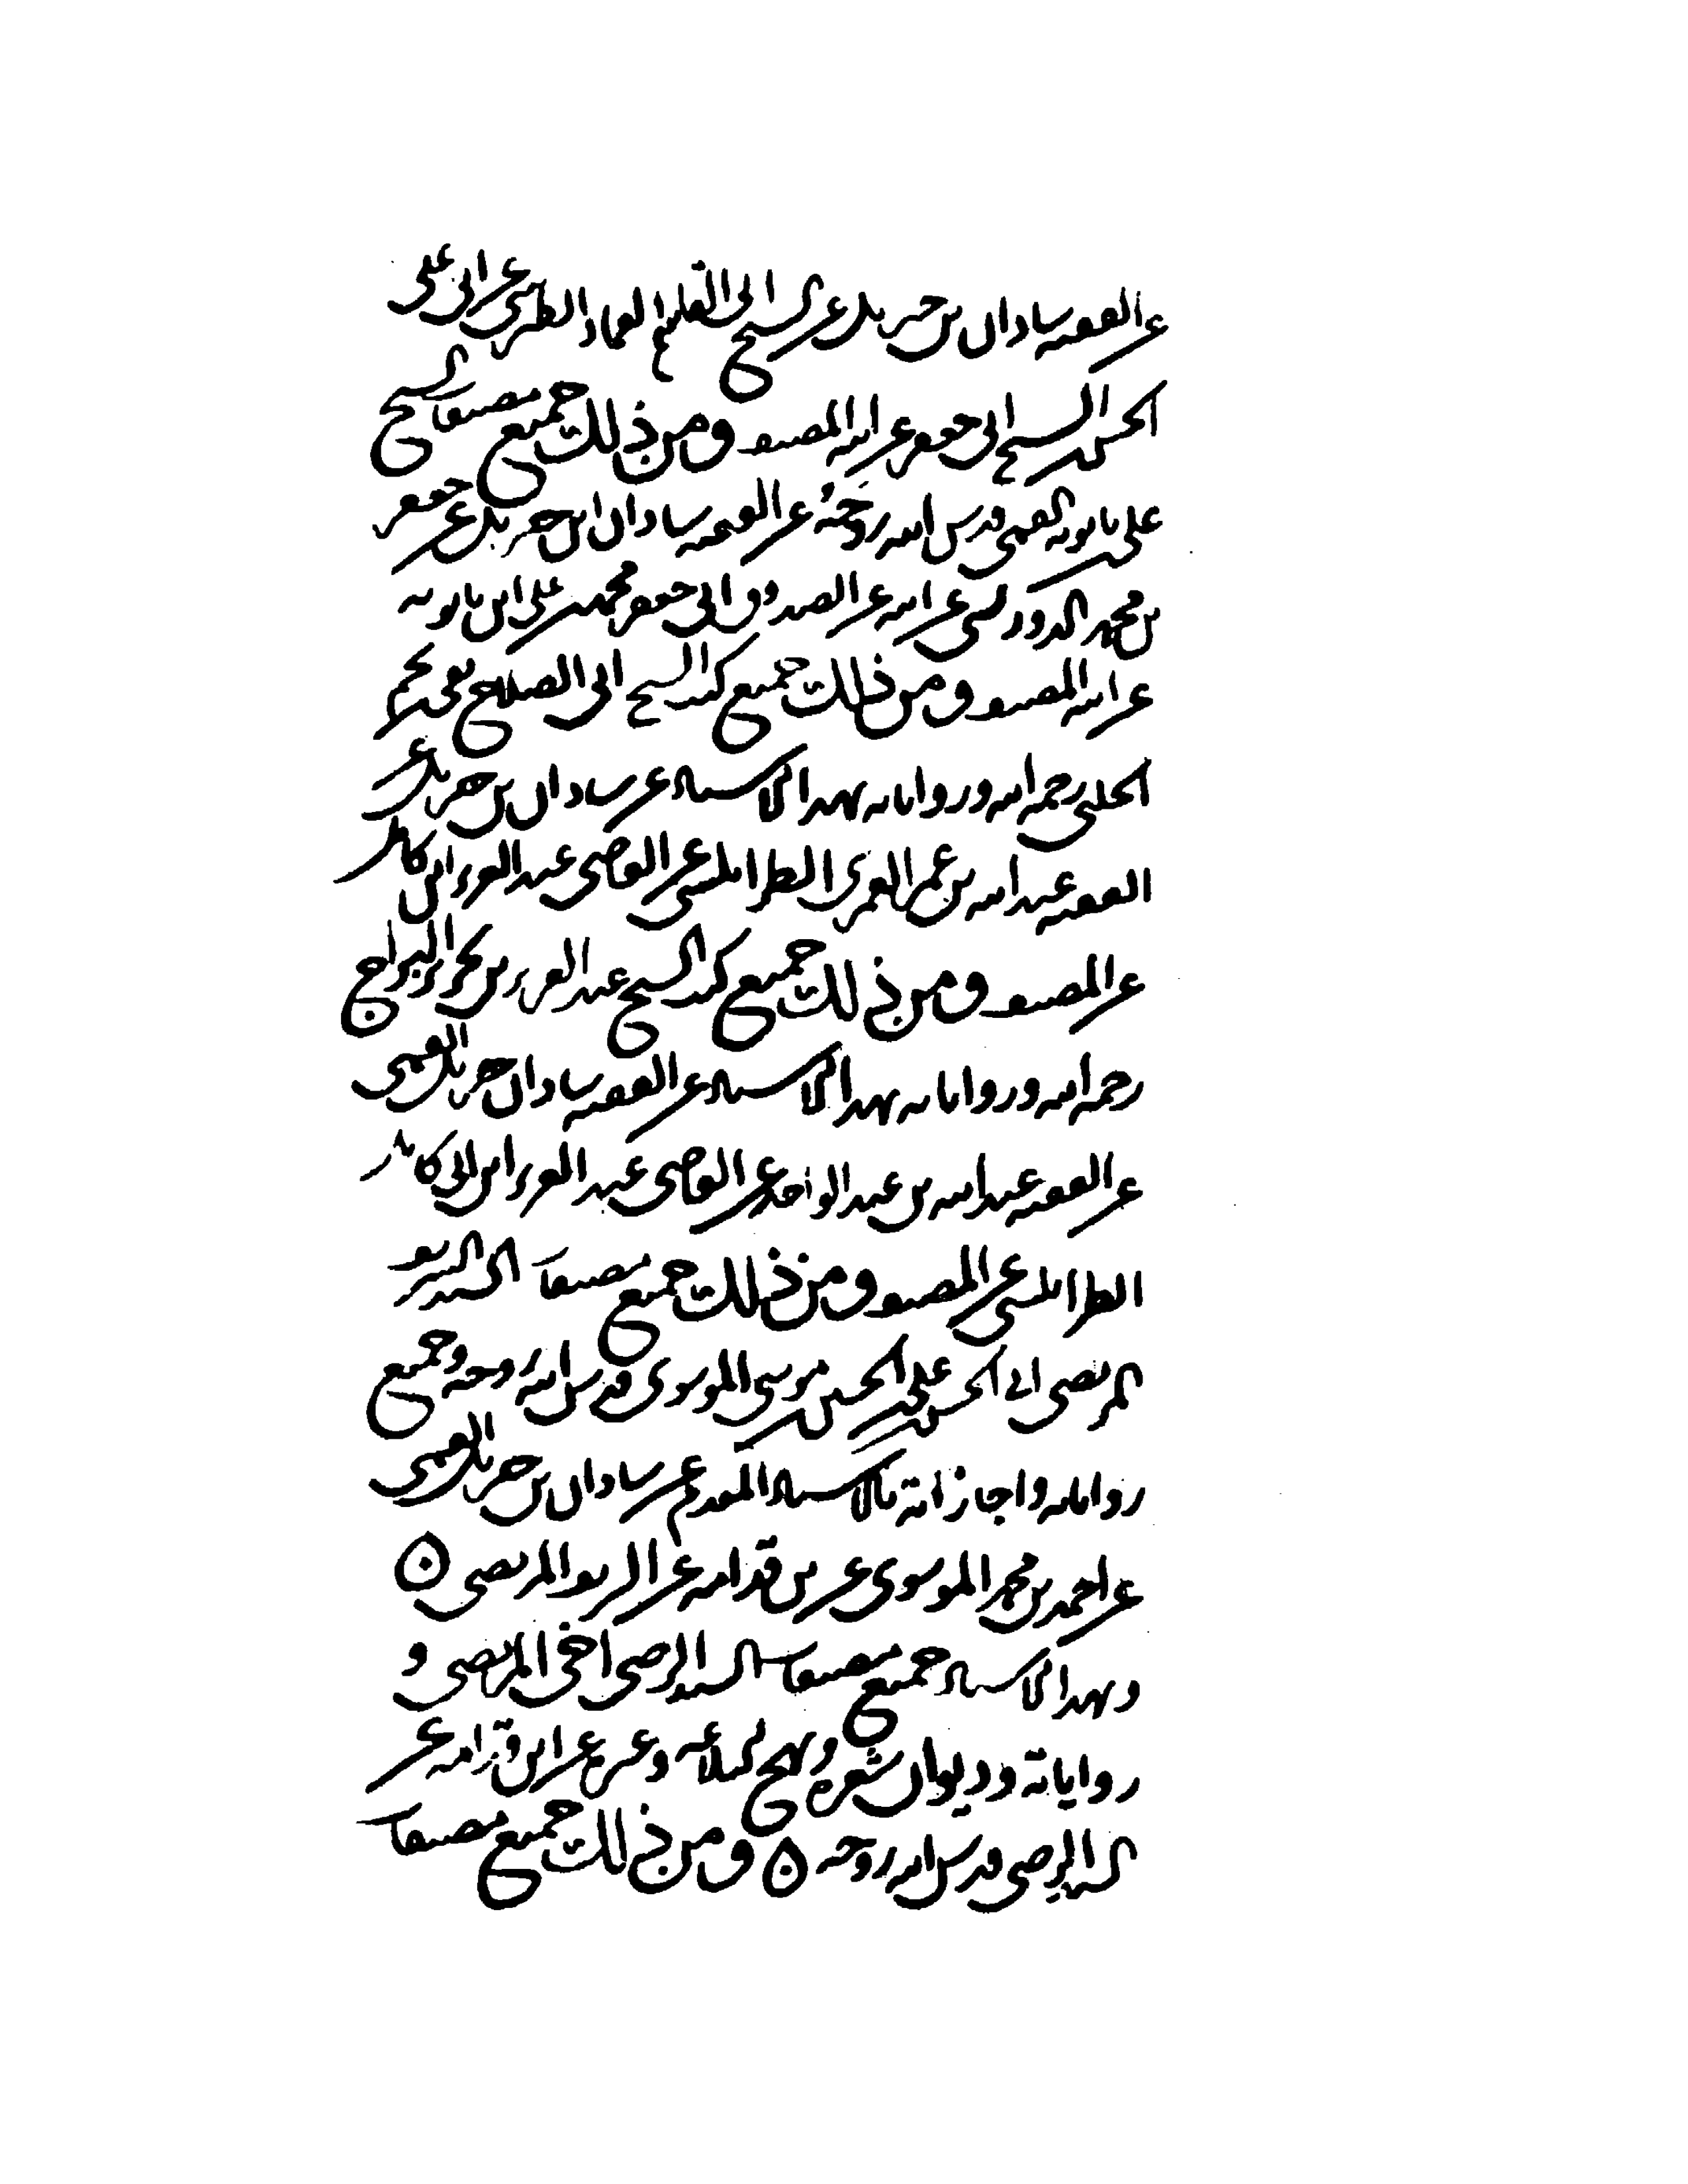 عن الفقيه شاذان بن جبريل عن الشيخ ابي القاسم العماد الطبري عن ابي علي
الحسن بن الشيخ ابي جعفر عن ابيه المصنف ومن ذلك جميع مصنفات الشيخ
علي بن بابويه القمي قدس الله روحه عن الفقيه شاذان ابن جبريل عن جعفر
بن محمد الدوريستي عن ابيه عن الصدوق ابي جعفر محمد بن علي ابن بابويه
عن ابيه المصنف ومن ذلك جميع كتب الشيخ ابي الصلاح تقي بن نجم
الحلبي رحمه الله ورواياته بهذا الاسناد عن شاذان بن جبريل عن
الفقيه عبد الله بن عمر العمري الطرابلسي عن القاضي عبد العزيز ابن كامل
عن المصنف ومن ذلك جميع كتب الشيخ عبد العزيز بن نحرير بن البراج
رحمه الله ورواياته بهذا الاسناد عن الفقيه شاذان بن جبريل القمي
عن الفقيه عبد الله بن عبد الواحد عن القاضي عبد العزيز ابن ابي كامل
الطرابلسي عن المصنف ومن ذلك جميع مصنفات السيد الشريف
المرتضى ابي الحسن علي بن الحسين بن موسى الموسوي قدس الله روحه وجميع
رواياته واجازاته بالاسناد المقدم عن شاذان بن جبريل القمي
عن احمد بن محمد الموسوي عن بن قدامه عن الشريف المرتضى ن
وبهذا الاسناد جميع مصنفات السيد الرضي اخي المرتضى و
رواياته وديوان شعره ونهج البلاغه وغيره عن ابن قدامه عن
السيد الرضي قدس الله روحه ن ومن ذلك جميع مصنفات